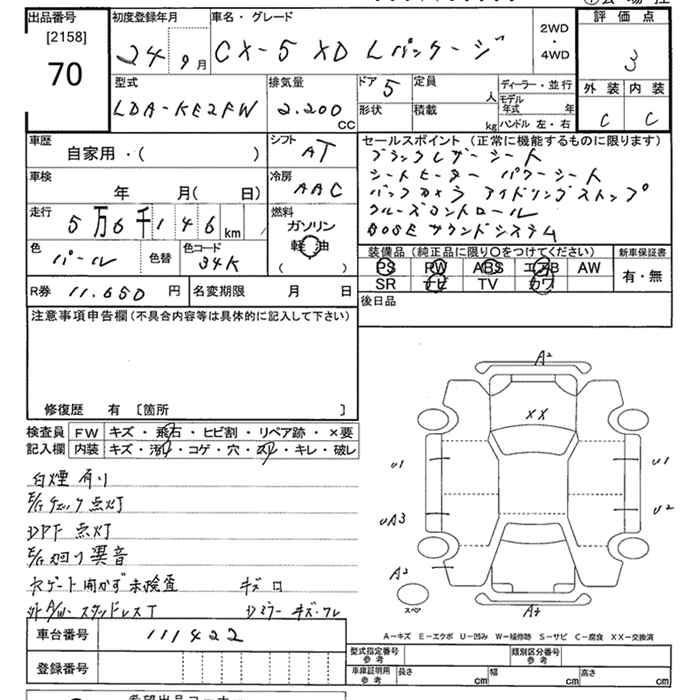 出品番号
[2158]
70
初度登録年月
24 9月
車名・グレード
CX-5 XD Lパッケージ
2WD
・
4WD
評価点
3
外装 内装
C C
型式
LDA-KE2FW
排気量
2.200 CC
ドア 5
形状
定員 人
積載 kg
ディーラー・並行
モデル年式 年
ハンドル 左・右
車歴
自家用・( )
シフト
AT
車検
年 月(日)
冷房
AAC
走行
5万6千146km
燃料
ガソリン
軽油
( )
色
パール
色替
色コード
34K
R券 11.650円
名変期限 月 日
セールスポイント (正常に機能するものに限ります)
ブラックレザーシート
シートヒーター パワーシート
バックカメラ アイドリングストップ
クルーズコントロール
BOSEサウンドシステム
装備品 (純正品に限り○をつけてください)
PS PW ABS エアB AW
SR ナビ TV カワ
新車保証書
有・無
後日品
注意事項申告欄(不具合内容等は具体的に記入して下さい)
修復歴 有 〔箇所 〕
検査員記入欄
FW キズ・飛石・ヒビ割・リペア跡・×要
内装 キズ・汚れ・コゲ・穴・スレ・キレ・破レ
白煙有り
E/gチェック点灯
DPF点灯
E/g廻り異音
ゲート開かず未検査 キズ
外A/W・スタッドレスT ミラーキズ・ワレ
車台番号 111422
登録番号
A2
XX
U1 U1
UA3 U2
A2
スペア
A2
A-キズ E-エクボ U-凹み W-補修跡 S-サビ C-腐食 XX-交換済
型式指定番号 参考
類別区分番号 参考
車庫証明用 参考
長さ cm
幅 cm
高さ cm